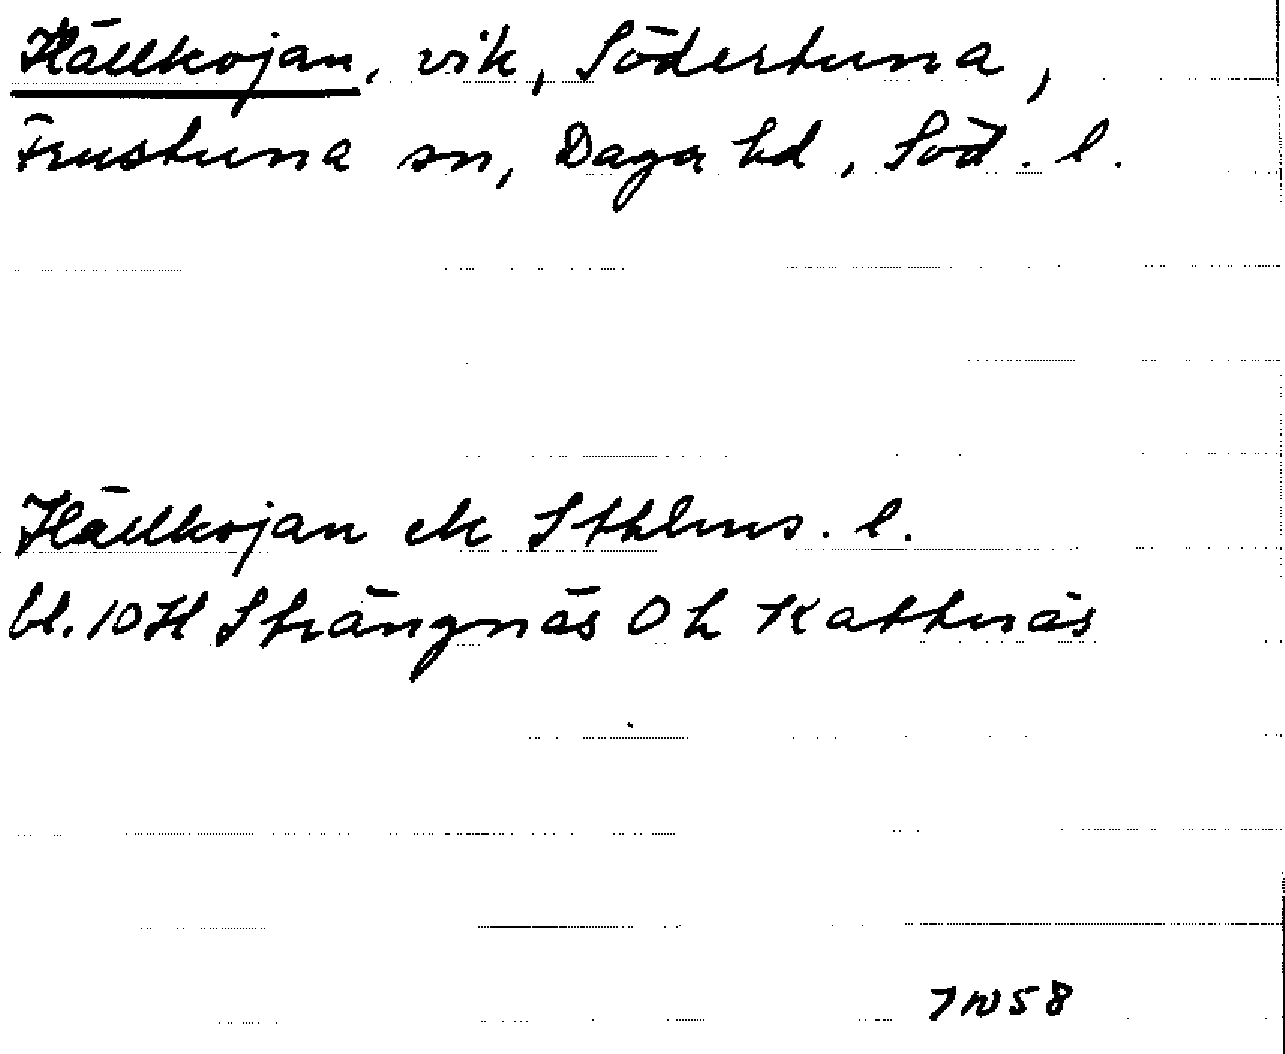 Hällkojan, vik, Södertuna,
Frustuna sn, Daga hd, Söd. l.
Hällkojan ek Sthlms. l.
bl. 10H Strängnäs 0h Kattnäs
7 58